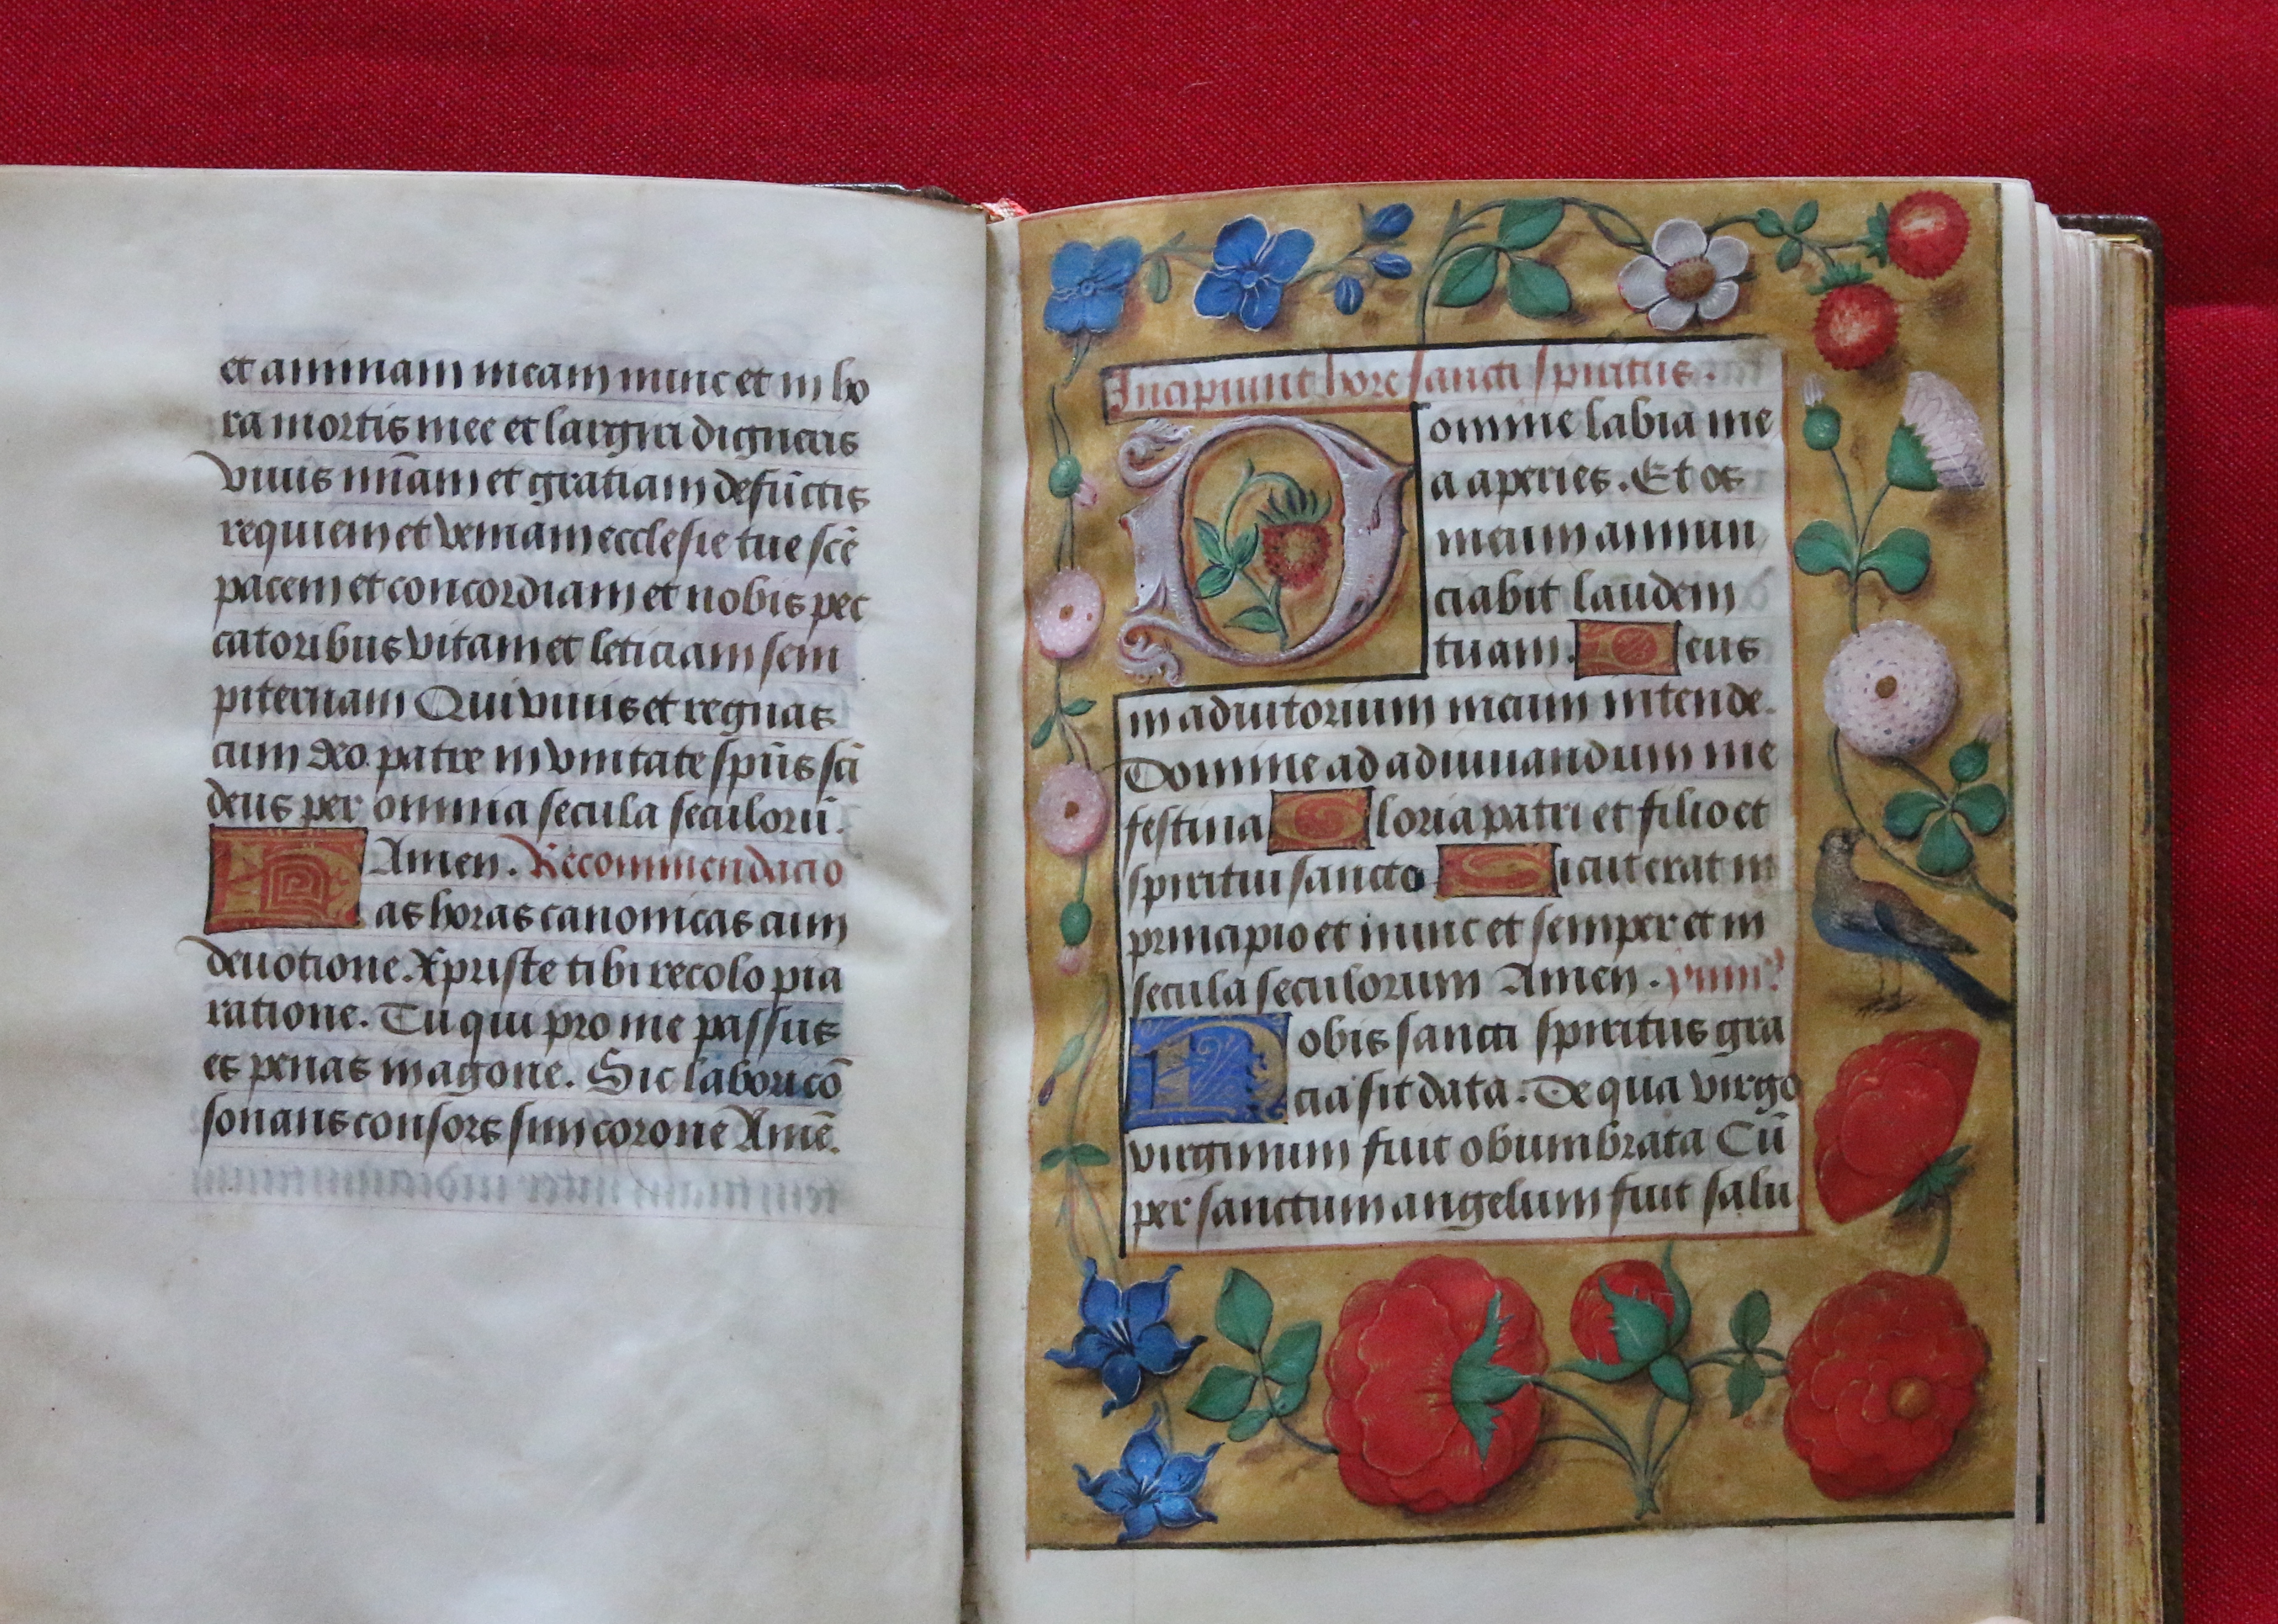 et animam meam nunc et in ho
ra mortis mee et largiri digneris
viuis mīam et gratiam defūctis
requiem et veniam ecclesie tue scē
pacem et concordiam et nobis pec
catoribus vitam et leticiam sem
piternam Qui viuis et regnas
cum deo patre in vnitate spūs sci
deus per omnia secula seculorū.
Amen. Recommendacio
Has horas canonicas cum
deuotione. Xpriste tibi recolo pia
ratione. Tu qui pro me passus
es penas in agone. Sic labori cō
sonans consors sim corone Amē.
Incipiunt hore sancti spiritus.
Domine labia me
a aperies. Et os
meum annun
ciabit laudem
tuam. Deus
in adiutorium meum intende.
Domine ad adiuuandum me
festina Gloria patri et filio et
spiritui sancto Sicut erat in
principio et nunc et semper et in
secula seculorum Amen.
Nobis sancti spiritus gra
cia sit data. De qua virgo
virginum fuit obumbrata Cū
per sanctum angelum fuit salu